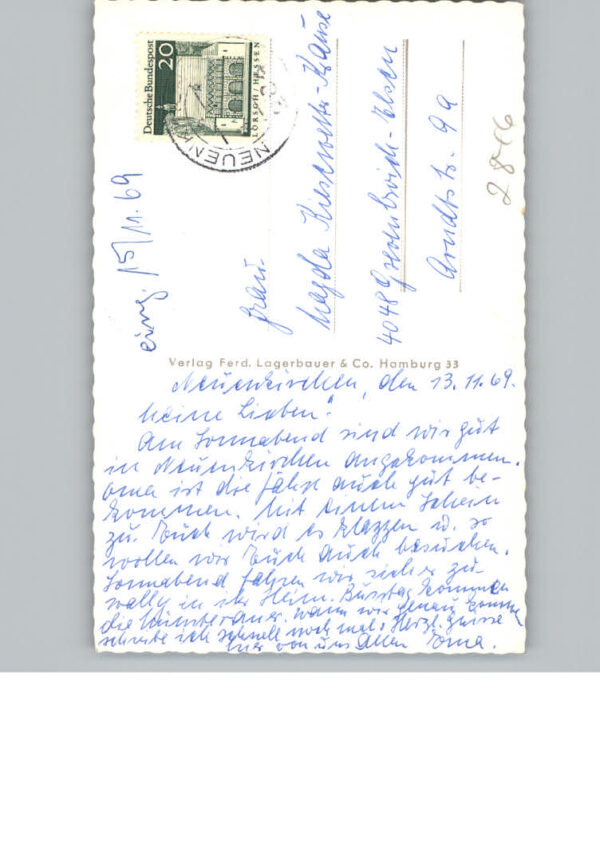 Deutsche Bundespost
20
LORSCH/HESSEN
NEUENK
eing. 15/11.69
Frau
Magda Kiesewetter-Krause
4048 Grevenbroich-Elsen
Arndtstr. 9a
2816
Verlag Ferd. Lagerbauer & Co. Hamburg 33
Neuenkirchen, den 13.11.69.
Meine Lieben!
Am Sonnabend sind wir gut
in Neuenkirchen angekommen.
Oma ist die Fahrt auch gut be-
kommen. Mit einem
zu Euch wird es klappen u. so
wollen wir Euch auch besuchen.
Sonnabend fahren wir sicher zu
Wally in ihr Heim. Busstag kommen
die. Wann wir genau kommen
schreibe ich schnell noch mal. Herzl. Grüsse
hier von uns Allen Oma.